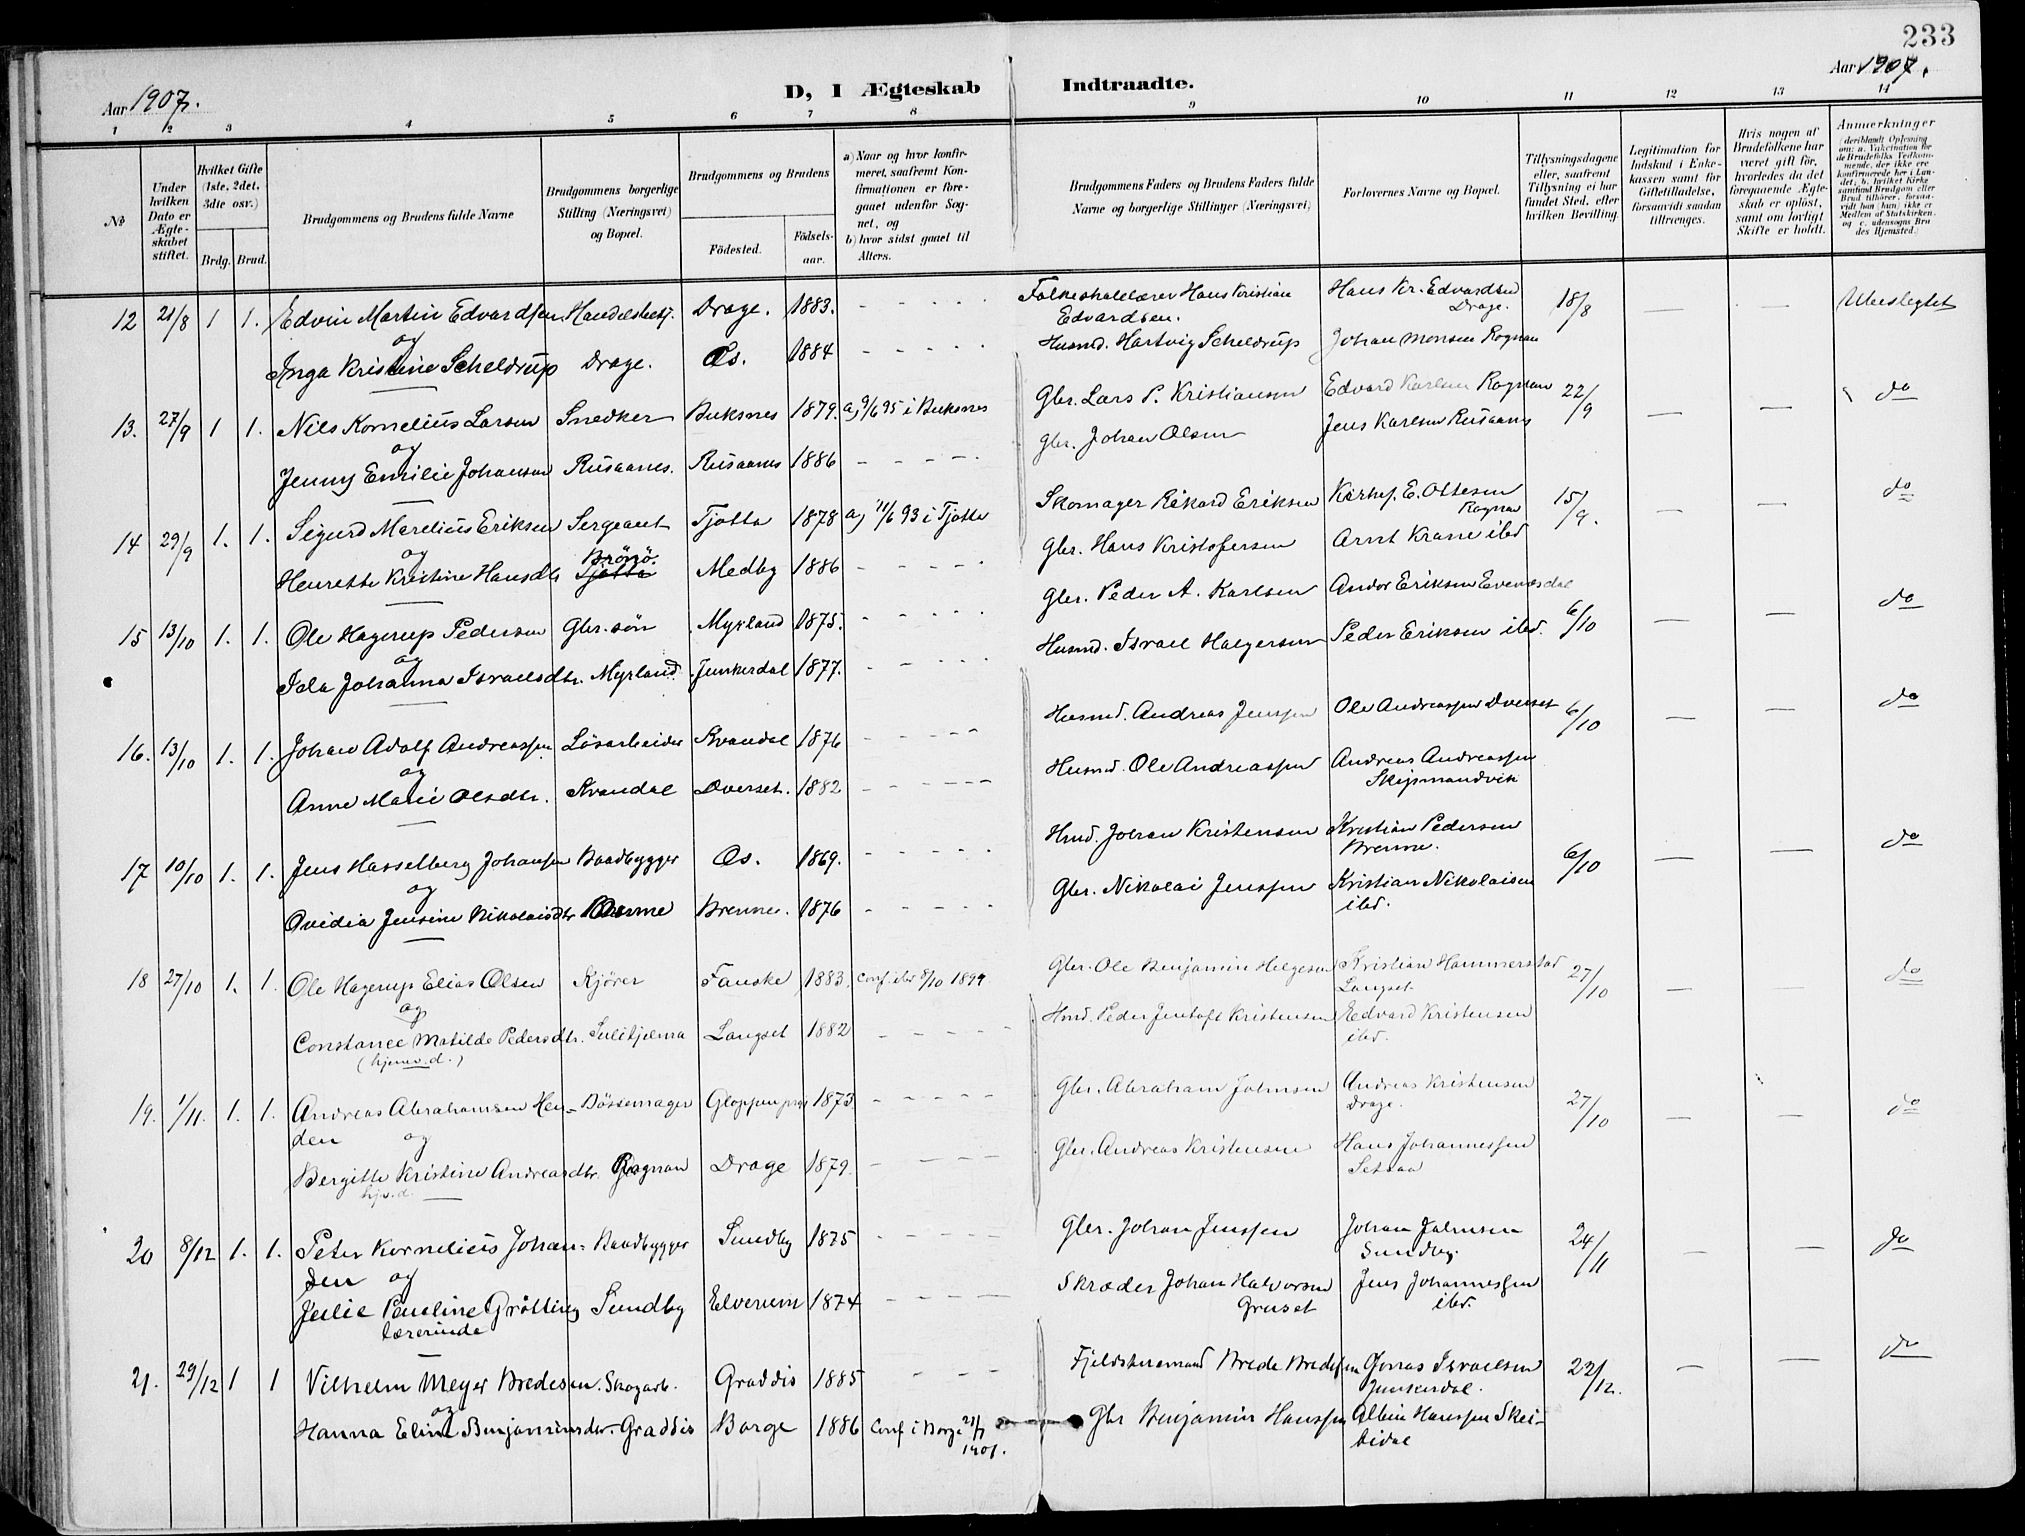 233
Aar 1907. D, I Ægteskab Indtraadte. Aar 1907.
1 2 3 4 5 6 7 8 9 10 11 12 13 14
No
Under hvilken Dato er Ægteskabet stiftet.
Hvilket Gifte (1ste, 2det, 3dte osv.)
Brdg. Brud.
Brudgommens og Brudens fulde Navne
Brudgommens borgerlige Stilling (Næringsvei) og Bopæl.
Brudgommens og Brudens
Födested. Födselsaar.
a) Naar og hvor konfirmeret, saafremt Konfirmationen er foregaaet udenfor Sognet, og
b) hvor sidst gaaet til Alters.
Brudgommens Faders og Brudens Faders fulde Navne og borgerlige Stillinger (Næringsvei)
Forlovernes Navne og Bopæl.
Tillysningsdagene eller, saafremt Tillysning ei har fundet Sted, efter hvilken Bevilling.
Legitimation for Indskud i Enkekassen samt for Giftetilladelse, forsaavidt saadan tiltrænges.
Hvis nogen af Brudefolkene har været gift för, hvorledes da det foregaaende Ægteskab er oplöst, samt om lovligt Skifte er holdt.
Anmerkninger (deriblandt Oplysning om: a. Vakcination for de Brudefolks Vedkommende, der ikke ere konfirmerede her i Landet; b. hvilket Kirkesamfund Brudgom eller Brud tilhörer, forsaavidt han (hun) ikke er Medlem af Statskirken, og c. udensogns Brudes Hjemsted.)
12 21/8 1 1. Edvin Martin Edvardsen Handelsbetj. Drage. 1883. - - - - - Folkeskolelærer Hans Kristian Edvardsen. Hans Kr. Edvardsen Drage. 18/8 — — Ubeslegtet
og
Inga Kristine Scheldrup Drage. Os. 1884 - - - - - Husmd. Hartvig Scheldrup Johan Monsen Rognan
13. 27/9 1 1. Nils Kornelius Larsen Snedker Buksnes 1879. a) 9/6 95 i Buksnes Gbr. Lars P. Kristiansen Edvard Karlsen Rognan 22/9 — — do
og
Jenny Emilie Johansen Rusaanes. Rusaanes 1886 - - - - - Gbr. Johan Olsen Jens Karlsen Rusaanes
14 29/9 1. 1. Sigurd Marelius Eriksen Sergeant Tjötta 1878 a) 11/6 93 i Tjötta Skomager Rikard Eriksen Kirkes. E. Ottesen Rognan 15/9. — — do
og Brönö.
Henrette Kristine Hansdtr Tjötta Medby 1886 - - - - - Gbr. Hans Kristofersen Arnt Krane ibd
15 13/10 1. 1. Ole Hagerup Pedersen Gbr. sön Myrland 1875. - - - - - Gbr. Peder A. Karlsen Andor Eriksen Evenesdal 6/10 — — do
og
Ida Johanna Israelsdtr. Myrland. Junkerdal 1877. - - - - - Husmd. Israel Holgersen Peder Eriksen ibd.
16. 13/10 1. 1. Johan Adolf Andreassen Lösarbeider Kvandal 1876 - - - - - Husmd. Andreas Jenssen Ole Andreassen Dverset 6/10 — — do
og
Anne Marie Olsdtr. Kvandal Dverset. 1882 - - - - - Husmd. Ole Andreassen Andreas Andreassen Skipmandvik
17 10/10 1. 1. Jens Hasselberg Johansen Baadbygger Os. 1869. - - - - - Hmd. Johan Kristensen Kristian Pedersen Brenne. 6/10 — — do
og
Ovidia Jensine Nikolaisdtr Brenne. 1876 - - - - - Gbr. Nikolai Jenssen Kristian Nikolaisen ibd.
18 27/10 1. 1. Ole Hagerup Elias Olsen Kjörer Fauske 1883. Conf. ibd 8/10 1899 Gbr. Ole Benjamin Helgesen Kristian Hammerstad Langset 27/10 — — do
og
Constance Matilde Pedersdtr. Sulitjelma Langset 1882 - - - - - Hmd. Peder Jentoft Kristensen Edvard Kristensen ibd.
(hjemv. d.)
19. 1/11. 1. 1. Andreas Abrahamsen Heu- Bössemager Gloppen prgj 1873. - - - - - Gbr. Abraham Johnsen Andreas Kristensen Drage. 27/10 — — do
den og
Bergitte Kristine Andreasdtr. Rognan Drage 1879. - - - - - Gbr. Andreas Kristensen Hans Johannessen Setsaa
hjv. d.
20 8/12 1. 1. Peter Kornelius Johan- Baadbygger Sundby 1875 - - - - - Gbr. Johan Jenssen Johan Johnsen Sundby. 24/11 — — do
sen og
Julie Pauline Grötting Sundby Elverum 1874 - - - - - Skræder Johan Halvorsen Gruset Jens Johannessen ibd.
lærerinde
21. 29/12 1 1 Vilhelm Meyer Bredesen. Skogarb. Graddis 1885 - - - Fjeldstuemand Brede Bredesen Jonas Israelsen Junkerdal. 22/12. — — do
og
Hanna Eline Benjaminsdtr. Graddis Borge 1886 Conf. i Borge 21/7 1901. Gbr Benjamin Hanssen Albin Hanssen Skeibidal